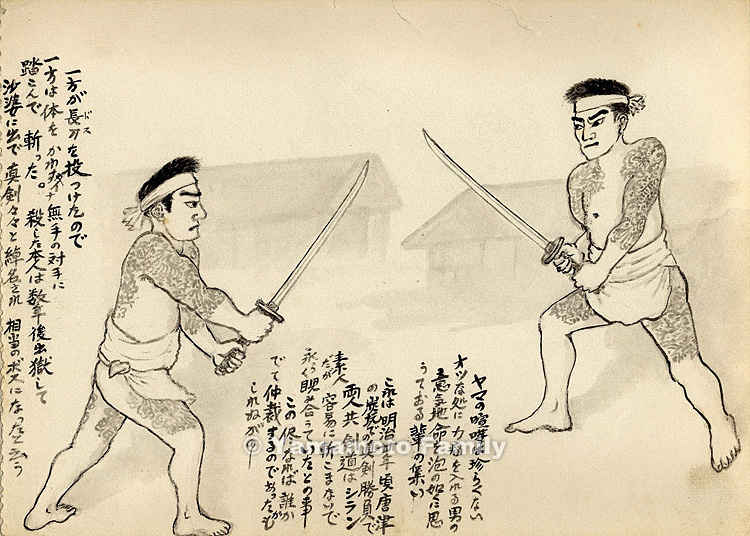 ヤマの喧嘩は珍らしくない
オツな処に力瘤を入れる男の
意気地 命を泡の如に思
うておる輩の集い
これは明治 年頃唐津
の炭坑の真剣勝負で
両人共 剣道はシラン
素人
だが 容易に斬こまないで
永く睨み合うていたとの事
この侭なれば誰か
でて仲裁するのであったが
しれねが
一方が長刀を投つけたので
ドス
一方は体をかわし 無手の対手に
踏こんで 斬った。 殺した本人は数年後出獄して
沙婆に出で 真剣々々と綽名され 相当のボスになった 云う
© Yamamoto Family